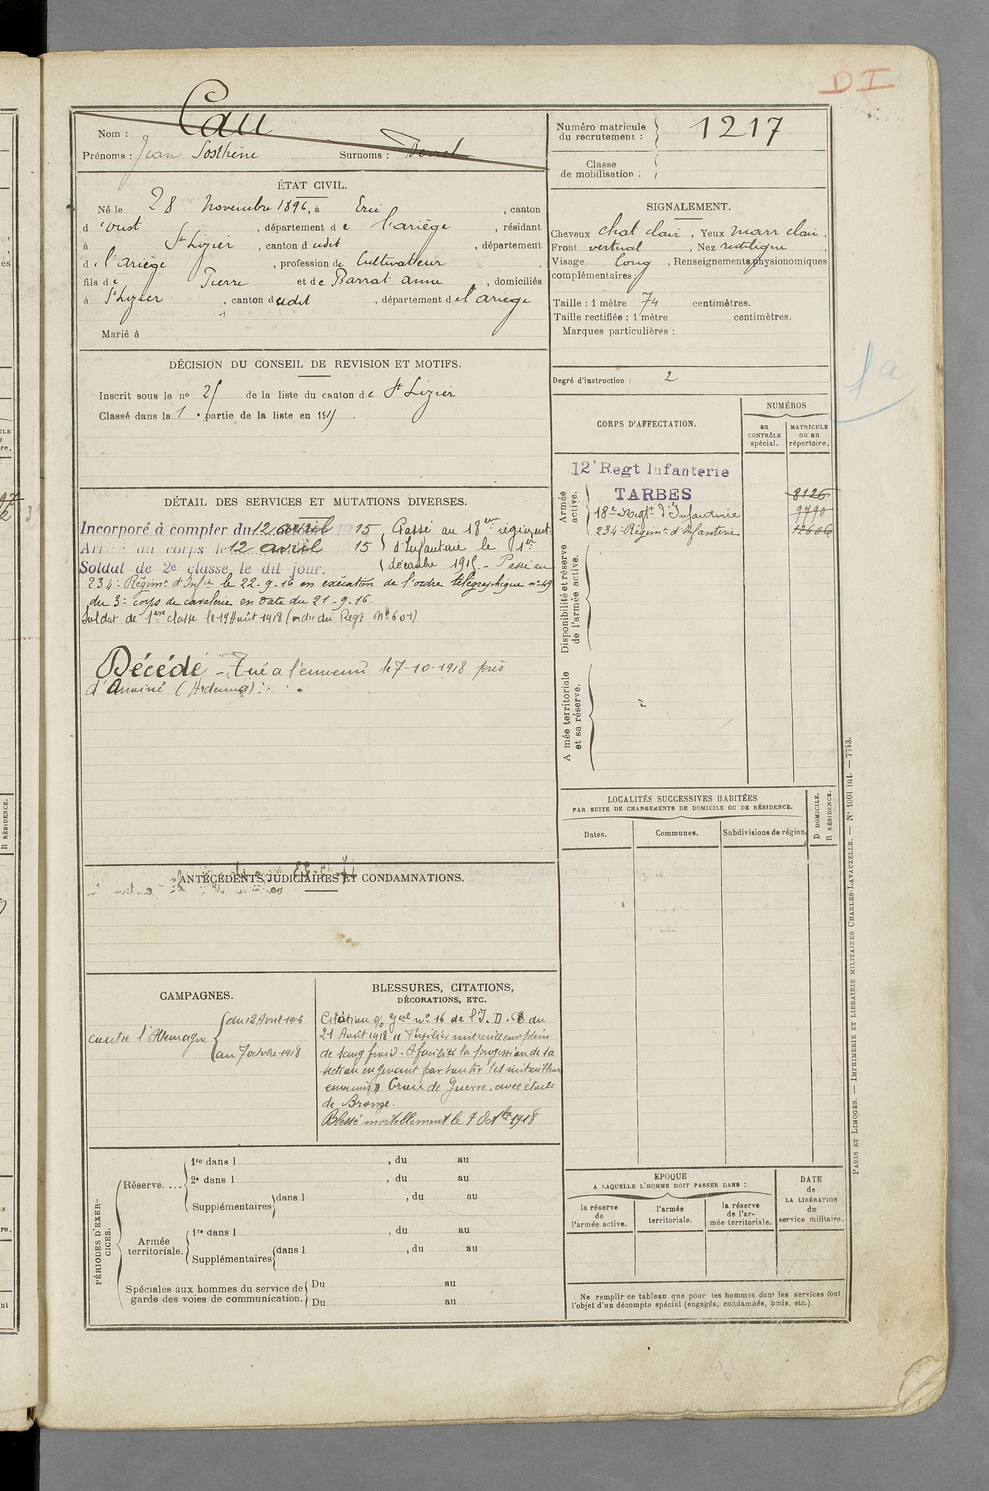 DI
Nom : Cau
Prénoms : Jean Sosthène Surnoms :
Numéro matricule du recrutement : 1217
Classe de mobilisation :
ÉTAT CIVIL.
Né le 28 Novembre 1896, à Ercé, canton
d'Oust, département de l'ariège, résidant
à St Lizier, canton dudit, département
d. l'ariège, profession de Cultivateur
fils de Pierre et de Barrat anne, domiciliés
à St Lizier, canton dudit, département del'ariège
Marié à
SIGNALEMENT.
Cheveux chat clair, Yeux marr clair,
Front vertical, Nez rectiligne,
Visage long, Renseignements physionomiques
complémentaires :
Taille : 1 mètre 74 centimètres.
Taille rectifiée : 1 mètre centimètres.
Marques particulières :
Degré d'instruction : 2
1a
DÉCISION DU CONSEIL DE REVISION ET MOTIFS.
Inscrit sous le no 25 de la liste du canton de St Lizier
Classé dans la 1e partie de la liste en 1915.
DÉTAIL DES SERVICES ET MUTATIONS DIVERSES.
Incorporé à compter du 12 avril 1915
Arrivé au corps le 12 avril 15
Soldat de 2e classe le dit jour.
Passé au 18eme régiment
d'Infanterie le 1er
décembre 1915. - Passé au
234e Régimt d'Infie le 22-9-16 en exécution de l'ordre télégraphique no 49
du 3e corps de cavalerie en date du 21-9-16.
Soldat de 1ère classe le 19 Août 1918 (ordre du Regt No 601)
Décédé - Tué à l'ennemi le 7-10-1918 près
d' (Ardennes)
CORPS D'AFFECTATION.
NUMÉROS
au CONTRÔLE spécial.
MATRICULE ou au répertoire.
Armée active.
12e Regt Infanterie
TARBES 8126
18e Regt d'Infanterie 9790
234e Régimt d'Infanterie 12606
Disponibilité et réserve de l'armée active.
Armée territoriale et sa réserve.
LOCALITÉS SUCCESSIVES HABITÉES
PAR SUITE DE CHANGEMENTS DE DOMICILE OU DE RÉSIDENCE.
Dates.
Communes.
Subdivisions de région.
D DOMICILE.
R RÉSIDENCE.
ANTÉCÉDENTS JUDICIAIRES ET CONDAMNATIONS.
CAMPAGNES.
contre l'Allemagne
du 12 Avril 1915
au 7 octobre 1918
BLESSURES, CITATIONS,
DÉCORATIONS, ETC.
Citation o/ Gal no 16 de l'I.D. 68 du
21 Août 1918 " Fusilier mitrailleur plein
de sang froid. A facilité la progression de la
section en
ennemis" Croix de Guerre, avec étoile
de Bronze.
Blessé mortellement le 7 Octbre 1918
PÉRIODES D'EXERCICES.
Réserve....
1re dans l , du au
2e dans l , du au
Supplémentaires dans l , du au
Armée territoriale.
1re dans l , du au
Supplémentaires dans l , du au
Spéciales aux hommes du service de garde des voies de communication.
Du au
Du au
EPOQUE
A LAQUELLE L'HOMME DOIT PASSER DANS :
la réserve de l'armée active.
l'armée territoriale.
la réserve de l'armée territoriale.
DATE de LA LIBÉRATION du service militaire.
Ne remplir ce tableau que pour les hommes dont les services font
l'objet d'un décompte spécial (engagés, condamnés, omis, etc.).
PARIS ET LIMOGES. — IMPRIMERIE ET LIBRAIRIE MILITAIRES CHARLES-LAVAUZELLE. — No 1001 int. — 7743.